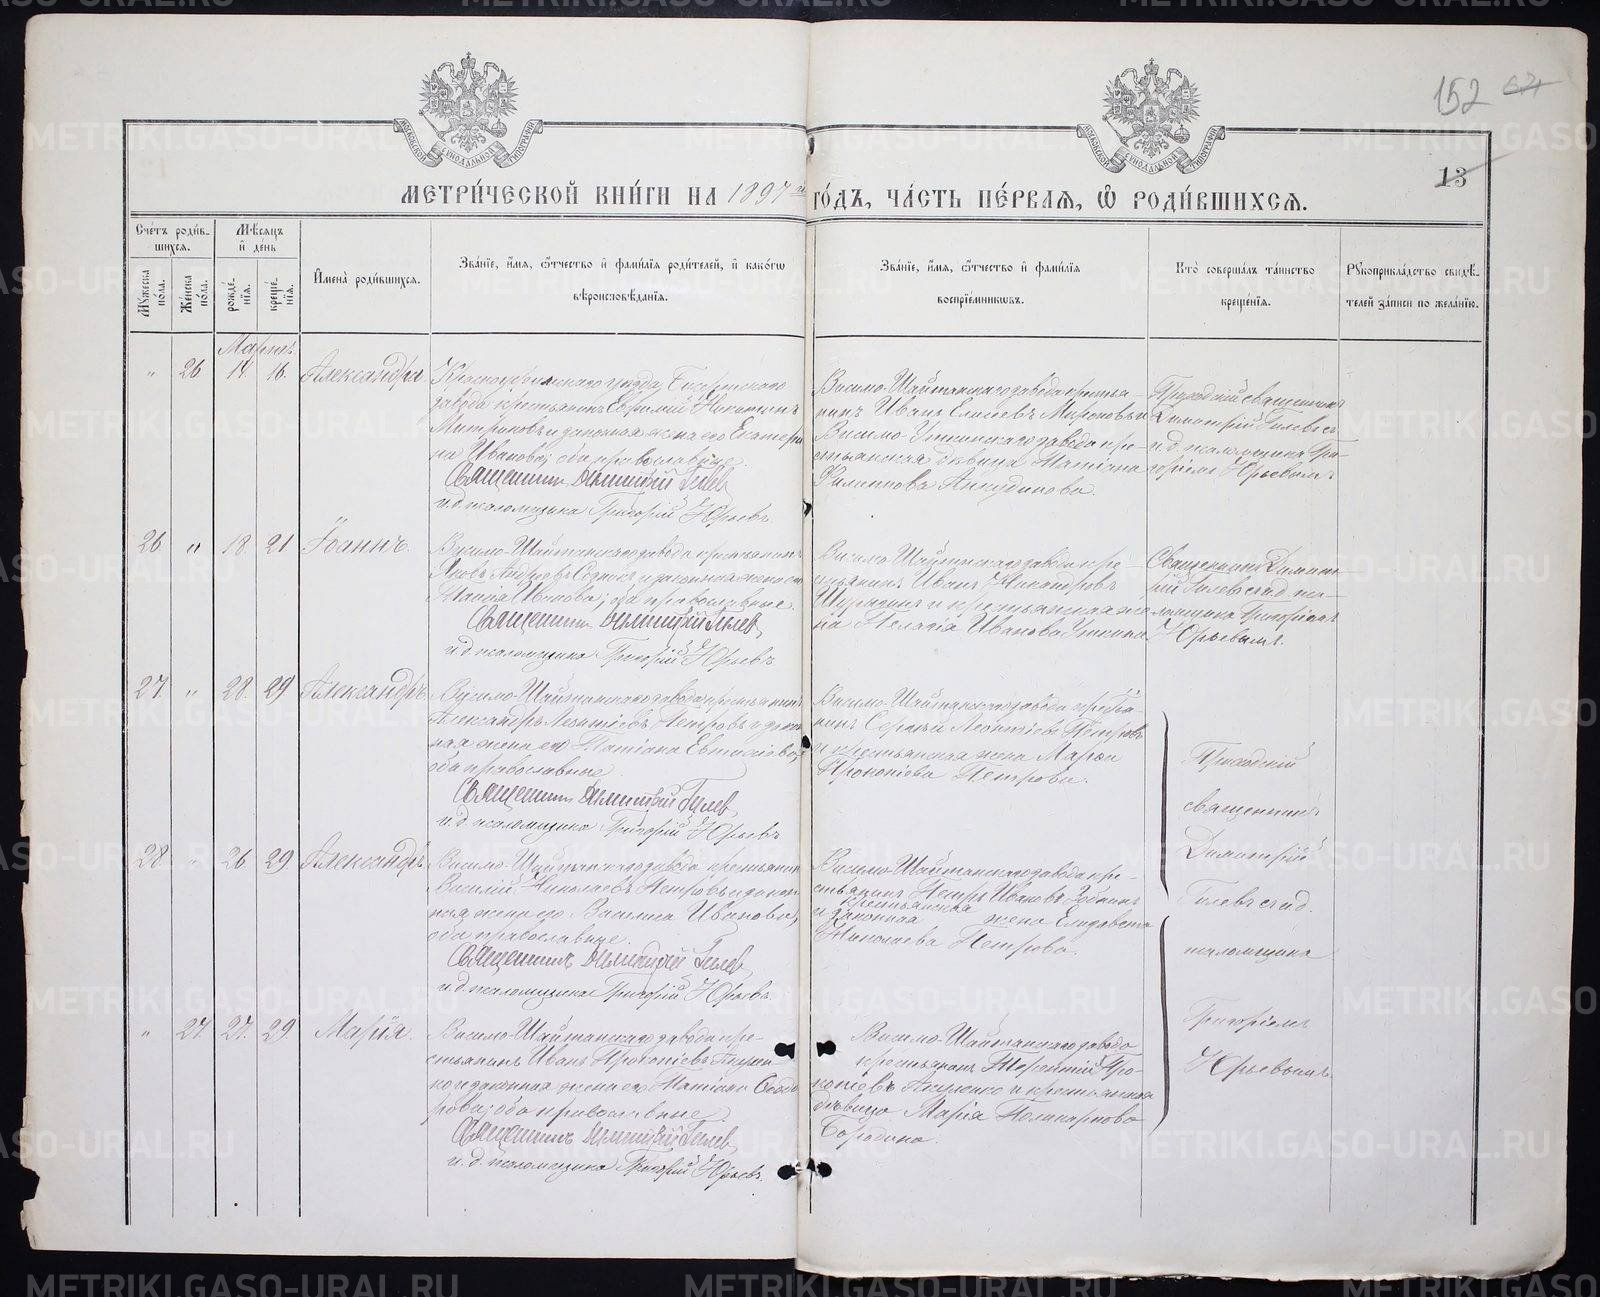 152
13
МЕТРИ́ЧЕСКОЙ КНИ́ГИ НА 1897 й ГО́ДЪ, ЧА́СТЬ ПЕ́РВАЯ, Ѡ РОДИ́ВШИХСЯ.
Сче́тъ роди́в-
шихся.
Му́жеска по́ла.
Же́нска по́ла.
Мѣ́сяцъ
и҆ де́нь
рожде́-
нїя.
креще́-
нїя.
И҆мена̀ роди́вшихся.
Зва́нїе, и҆́мя, ѻ҆́тчество и҆ фами́лїя роди́телей, и҆ како́гѡ
вѣроисповѣ́данїя.
Зва́нїе, и҆́мя, ѻ҆́тчество и҆ фами́лїя
воспрїе́мникѡвъ.
Кто̀ соверша́лъ та́инство
креще́нїя.
Рꙋкоприкла́дство свидѣ́-
телей за́писи по жела́нїю.
Марта
" 26 14. 16. Александра
Красноуфимскаго уѣзда, Бисертскаго
завода крестьянинъ Евфимій Никитинъ
и законная жена его Екатери
на Иванова; оба православные.
Священникъ Димитрій Гилевъ
и. д. псаломщика Григорій Юрьевъ.
Висимо-Шайтанскаго завода крестья-
нинъ Иванъ Мироновъ и
Висимо-Уткинскаго завода кре-
стьянская дѣвица Татіана
Филиппова Анкудинова.
Приходскій священникъ
Димитрій Гилевъ съ
и. д. псаломщика Гри-
горіемъ Юрьевымъ.
26 " 18. 21 Іоаннъ.
Висимо-Шайтанскаго завода крестьянинъ
Яковъ Андреевъ и законная жена его
Иванова; оба православные.
Священникъ Димитрій Гилевъ
и. д. псаломщика Григорій Юрьевъ
Висимо-Шайтанскаго завода кре-
стьянинъ Иванъ Никандровъ
и крестьянская же-
на Пелагія Иванова Уткина.
Священникъ Димит-
рій Гилевъ съ и. д. пса-
ломщика Григоріемъ
Юрьевымъ.
27 " 28. 29 Александръ.
Висимо-Шайтанскаго завода крестьянинъ
Александръ Леонтіевъ Петровъ и закон
ная жена его Татіана
оба православные
Священникъ Димитрій Гилевъ
и. д. псаломщика Григорій Юрьевъ
Висимо-Шайтанскаго завода крестья-
нинъ Сергѣй Леонтіевъ Петровъ
и крестьянская жена Марья
Прокопіева Петрова.
28. " 26 29. Александръ.
Висимо-Шайтанскаго завода крестьянинъ
Василій Николаевъ Петровъ и закон
ная жена его Василиса Иванова;
оба православные.
Священникъ Димитрій Гилевъ
и. д. псаломщика Григорій Юрьевъ.
Висимо-Шайтанскаго завода кре-
стьянинъ Петръ Ивановъ
крестьянская
и законная жена Елизавета
Николаева Петрова.
" 27. 27. 29. Марія.
Висимо-Шайтанскаго завода кре-
стьянинъ Иванъ Прокопіевъ
ко и законная жена его Татіана Ѳеодо
рова; оба православные
Священникъ Димитрій Гилевъ
и. д. псаломщика Григорій Юрьевъ.
Висимо-Шайтанскаго завода
крестьянинъ Терентій Про-
копіевъ и крестьянская
дѣвица Марія Поликарпова
Бородина.
Приходскій
священникъ
Димитрій
Гилевъ съ и. д.
псаломщика
Григоріемъ
Юрьевымъ.
METRIKI.GASO-URAL.RU